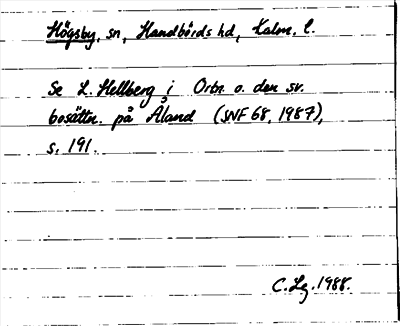 Högsby, sn, Handbörds hd, Kalm. l.
Se L. Hellberg i Ortn. o. den sv.
bosättn. på Åland (SNF 68, 1987),
s. 191.
C. Lg. 1988.